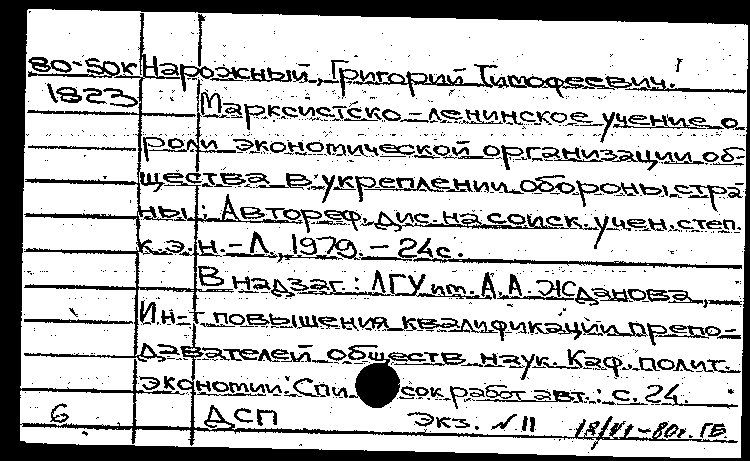 80-50к Нарожный, Григорий Тимофеевич.
1823 Марксистско-ленинское учение о
роли экономической организации об-
щества в укреплении обороны стра
ны: Автореф. дис. на соиск. учен. степ.
к.э.н. - Л., 1979. - 24с.
В надзаг.: ЛГУ им. А.А. Жданова,
Ин-т повышения квалификации препо-
давателей обществ. наук. Каф. полит.
экономии. Список работ авт.: с. 24.
6 ДСП Экз. № 11 18/VI-80г. ГБ